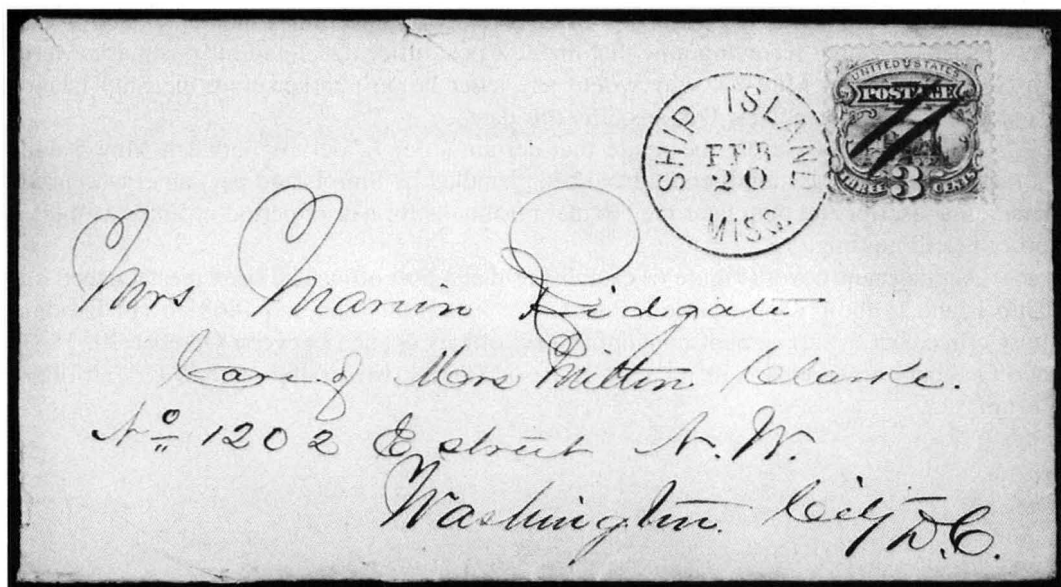 UNITED STATES
POSTAGE
THREE 3 CENTS
SHIP ISLAND
FEB
20
MISS.
Mrs Marion Ridgate
Care of Mrs Milton Clarke.
No 1202 E street N. W.
Washington City D.C.